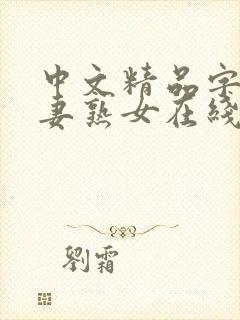 中文精品字
妻熟女在綫
劉霜